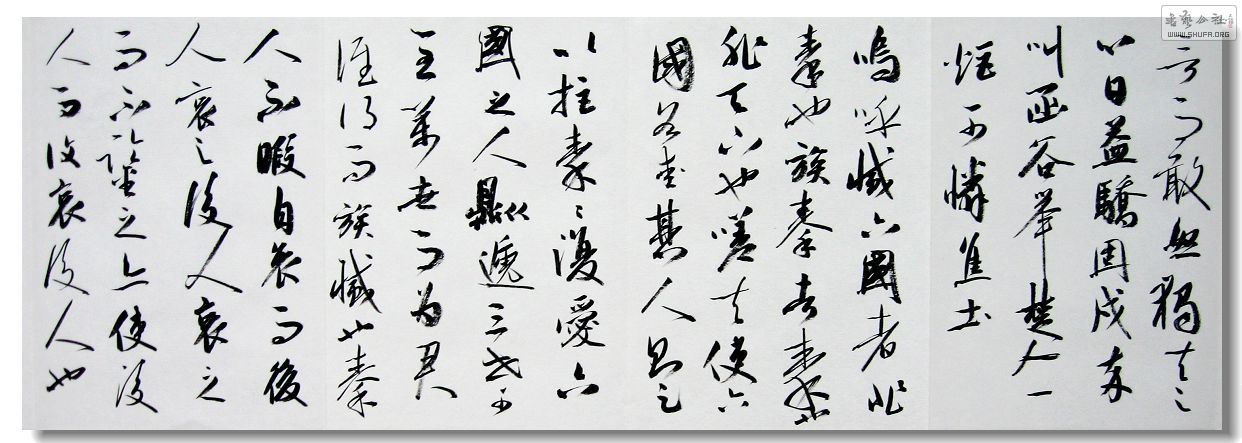 书艺公社
WWW.SHUFA.ORG
言而敢怒獨夫之
心日益驕固戍卒
叫函谷舉楚人一
炬可憐焦土
嗚呼滅六國者非
秦也族秦者秦
非天下也嗟夫使六
國各愛其人則足
以拒秦〻復愛六
國之人則遞三世可
至萬世而為君
誰得而族滅也秦
人不暇自哀而後
人哀之後人哀之
而不鑒之亦使後
人而復哀後人也